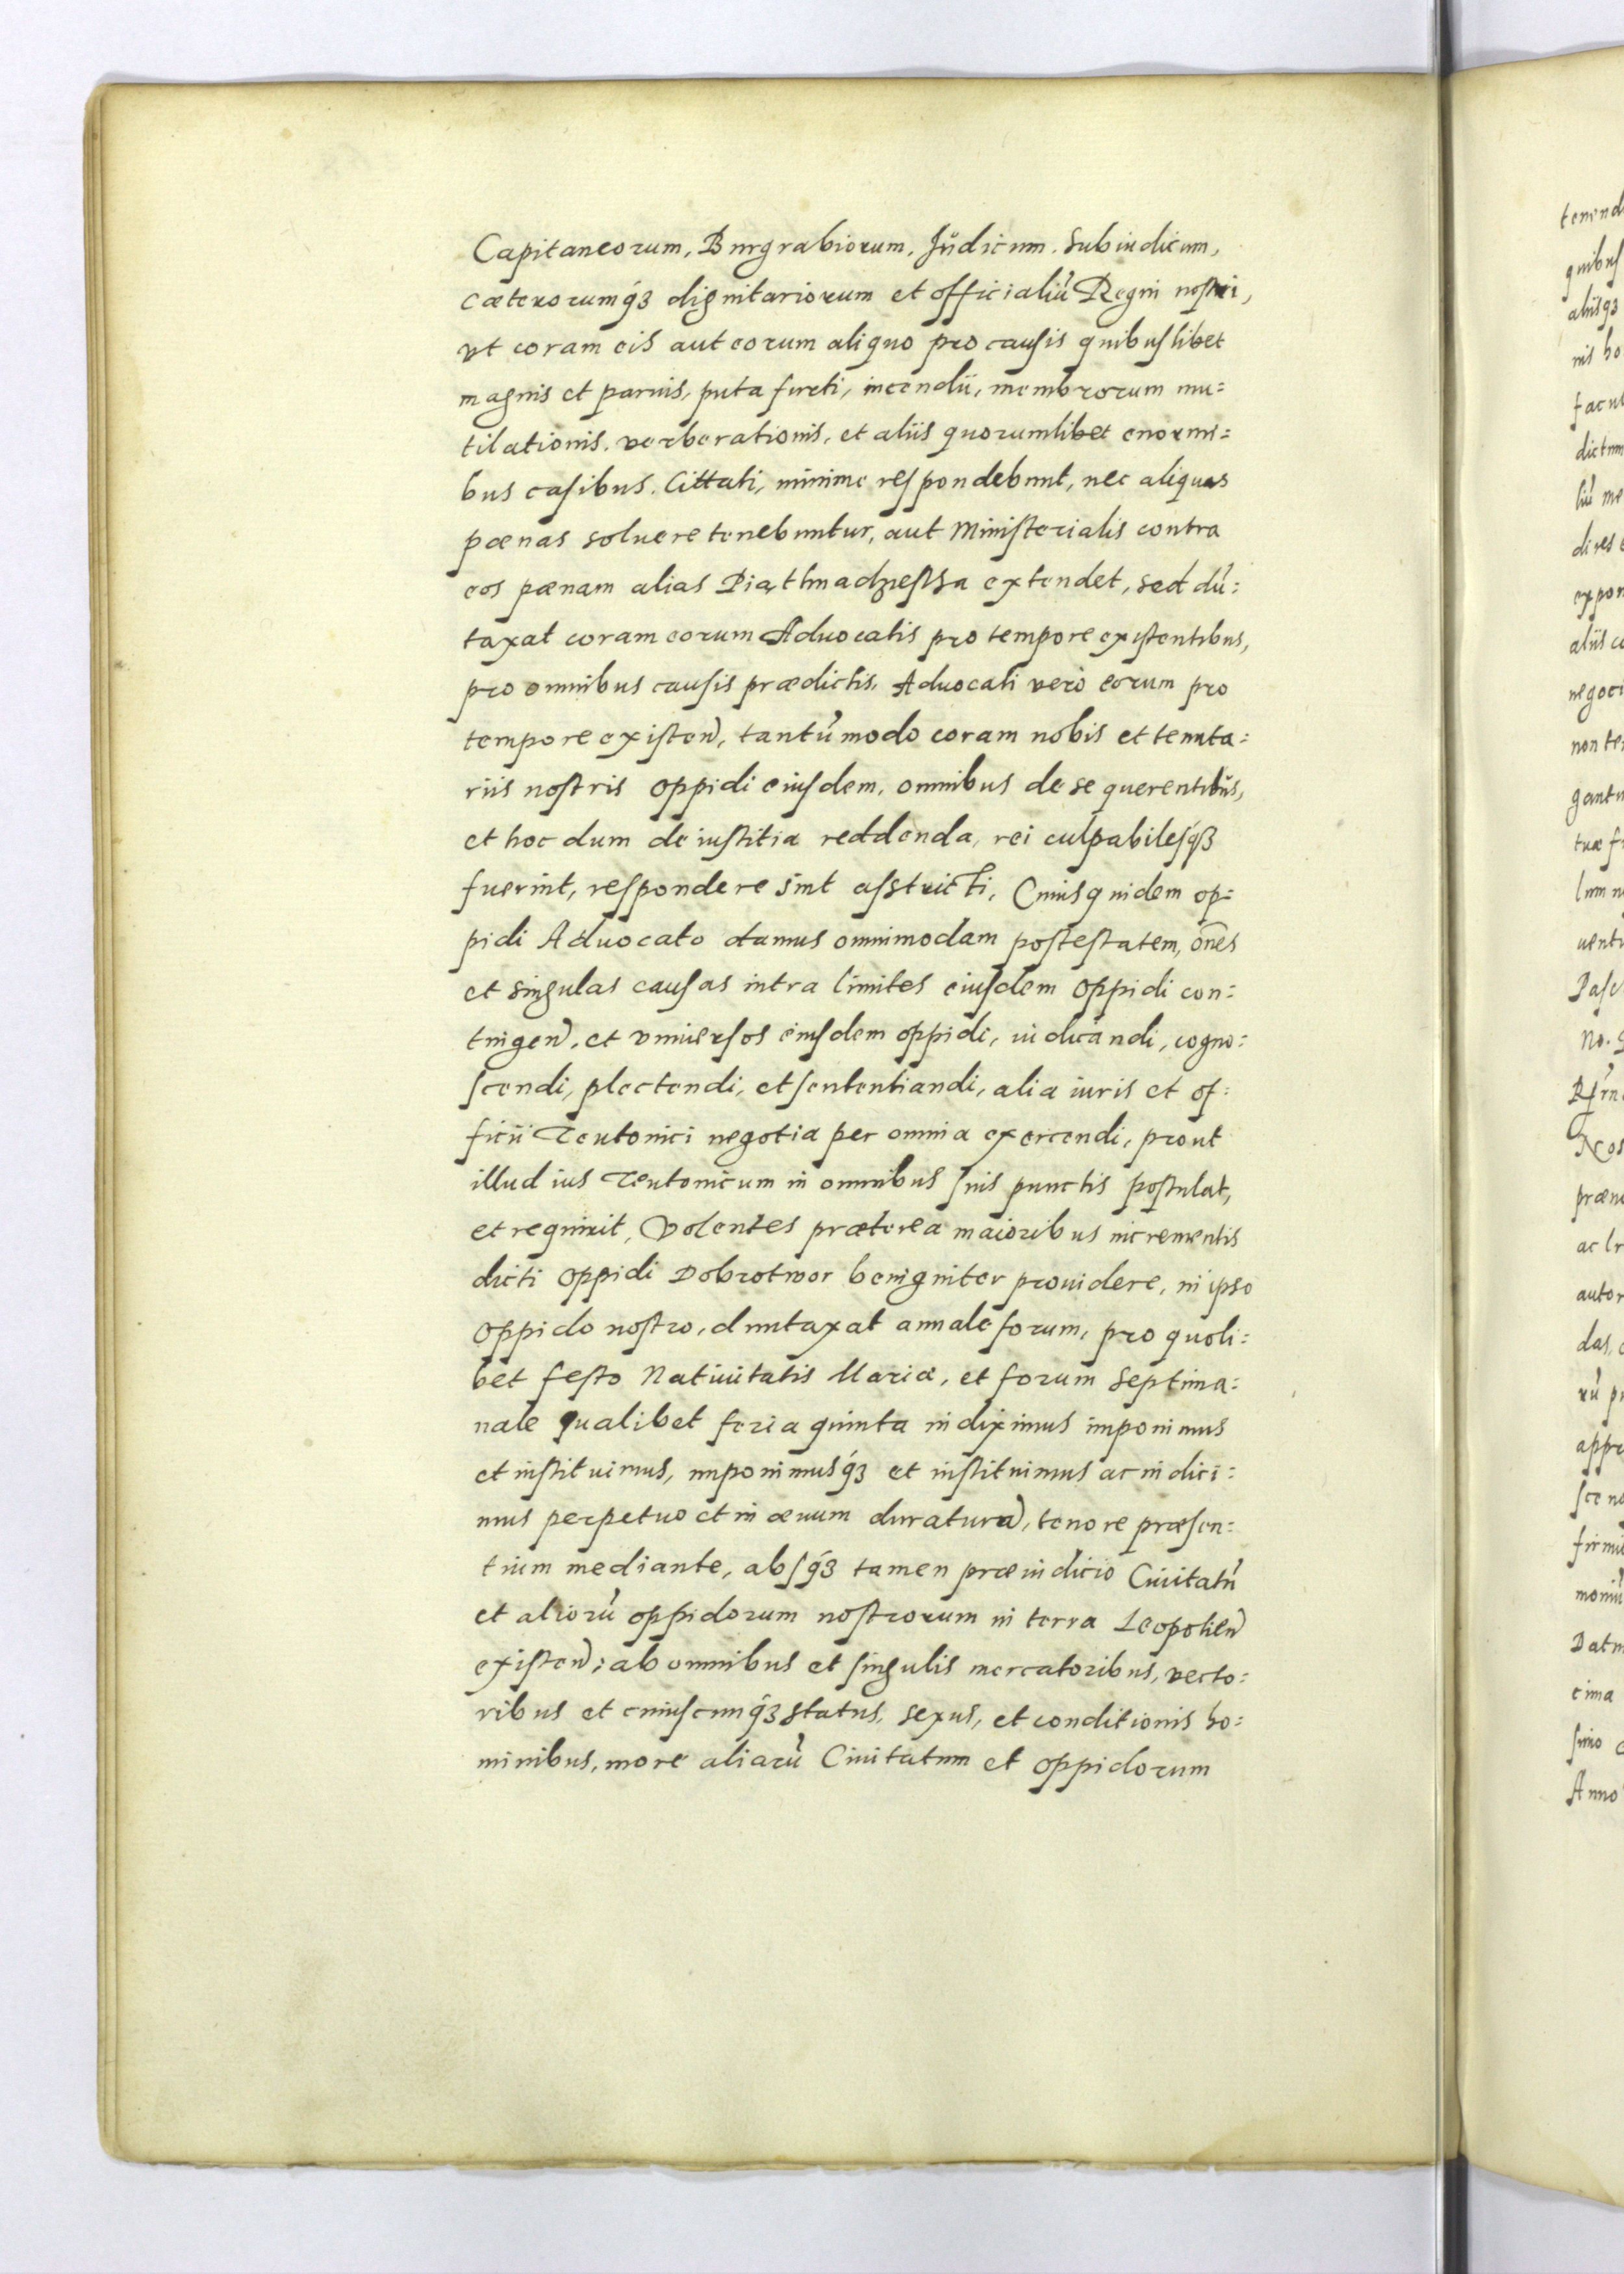 Capitaneorum, Burgrabiorum, Iudicum, Subiudicum,
cæterorumq́ꝫ dignitariorum et officialiũ Regni nostri,
vt coram eis aut eorum aliquo pro causis quibuslibet
magnis et paruis, puta furti, incendii, membrorum mu=
tilationis, verberationis, et aliis quorumlibet enormi=
bus casibus. Cittati, minime respondebunt, nec aliquas
pœnas soluere tenebuntur, aut Ministerialis contra
eos pænam alias Piąthnadzieстha extendet, sed dũ=
taxat coram eorum Aduocatis pro tempore existentibus,
pro omnibus causis prædictis. Aduocati verò eorum pro
tempore existen̄, tantũmodo coram nobis et tenuta=
riis nostris oppidi eiusdem, omnibus de se querentibus,
et hoc dum de iustitia reddenda, rei culpabilesq́ꝫ
fuerint, respondere sint asstricti, Cuiusquidem op=
pidi Aduocato damus omnimodam postestatem, oñes
et singulas causas intra limites eiusdem oppidi con=
tingen̄, et vniuersos eiusdem oppidi, iudicandi, cogno=
scendi, plectendi, et sententiandi, alia iuris et of=
ficii Teutonici negotia per omnia exercendi, prout
illud ius Teutonicum in omnibus suis punctis postulat,
et requirit, Volentes præterea maioribus incrementis
dicti oppidi Dobrotwor benigniter prouidere, in ipso
oppido nostro, duntaxat annale forum, pro quoli=
bet festo Natiuitatis Mariæ, et forum septima=
nale qualibet feria quinta indiximus imponimus
et instituimus, imponimusq́ꝫ et instituimus ac indici=
mus perpetuo et in æuum duratura, tenore præsen=
tium mediante, absq́ꝫ tamen præiudicio Ciuitatũ
et aliorũ oppidorum nostrorum in terra Leopolien̄
existen̄; ab omnibus et singulis mercatoribus, vecto=
ribus et cuiuscunq́ꝫ status, sexus, et conditionis ho=
minibus, more aliarũ Ciuitatum et oppidorum